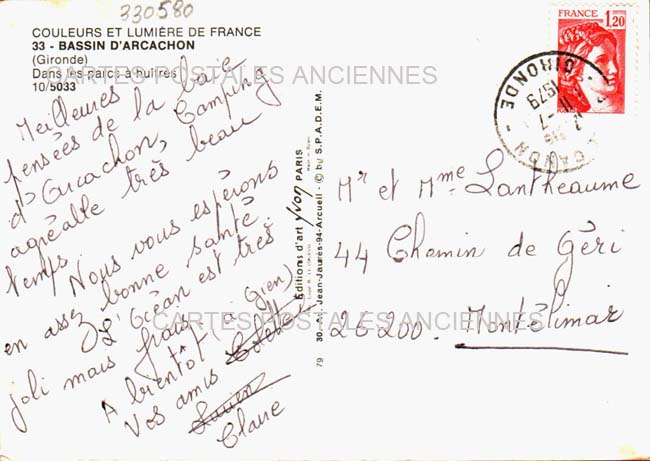 330580
COULEURS ET LUMIÈRE DE FRANCE
33 - BASSIN D'ARCACHON
(Gironde)
Dans les parcs à huîtres
10/5033
CARTES POSTALES ANCIENNES
Meilleures
pensées de la baie
d'Arcachon, Camping
agréable très beau
temps. Nous vous espérons
en assez bonne santé.
L'Océan est très
joli mais frais.
A bientôt (à Gien)
Vos amis
Claire
Éditions d'art Yvon PARIS
30, Av. Jean-Jaurès-94-Arcueil - © by S.P.A.D.E.M.
79
FRANCE
1,20
1979
GIRONDE
Mr et Mme Lantheaume
44 Chemin de Géri
26200. Montélimar
CARTES POSTALES ANCIENNES